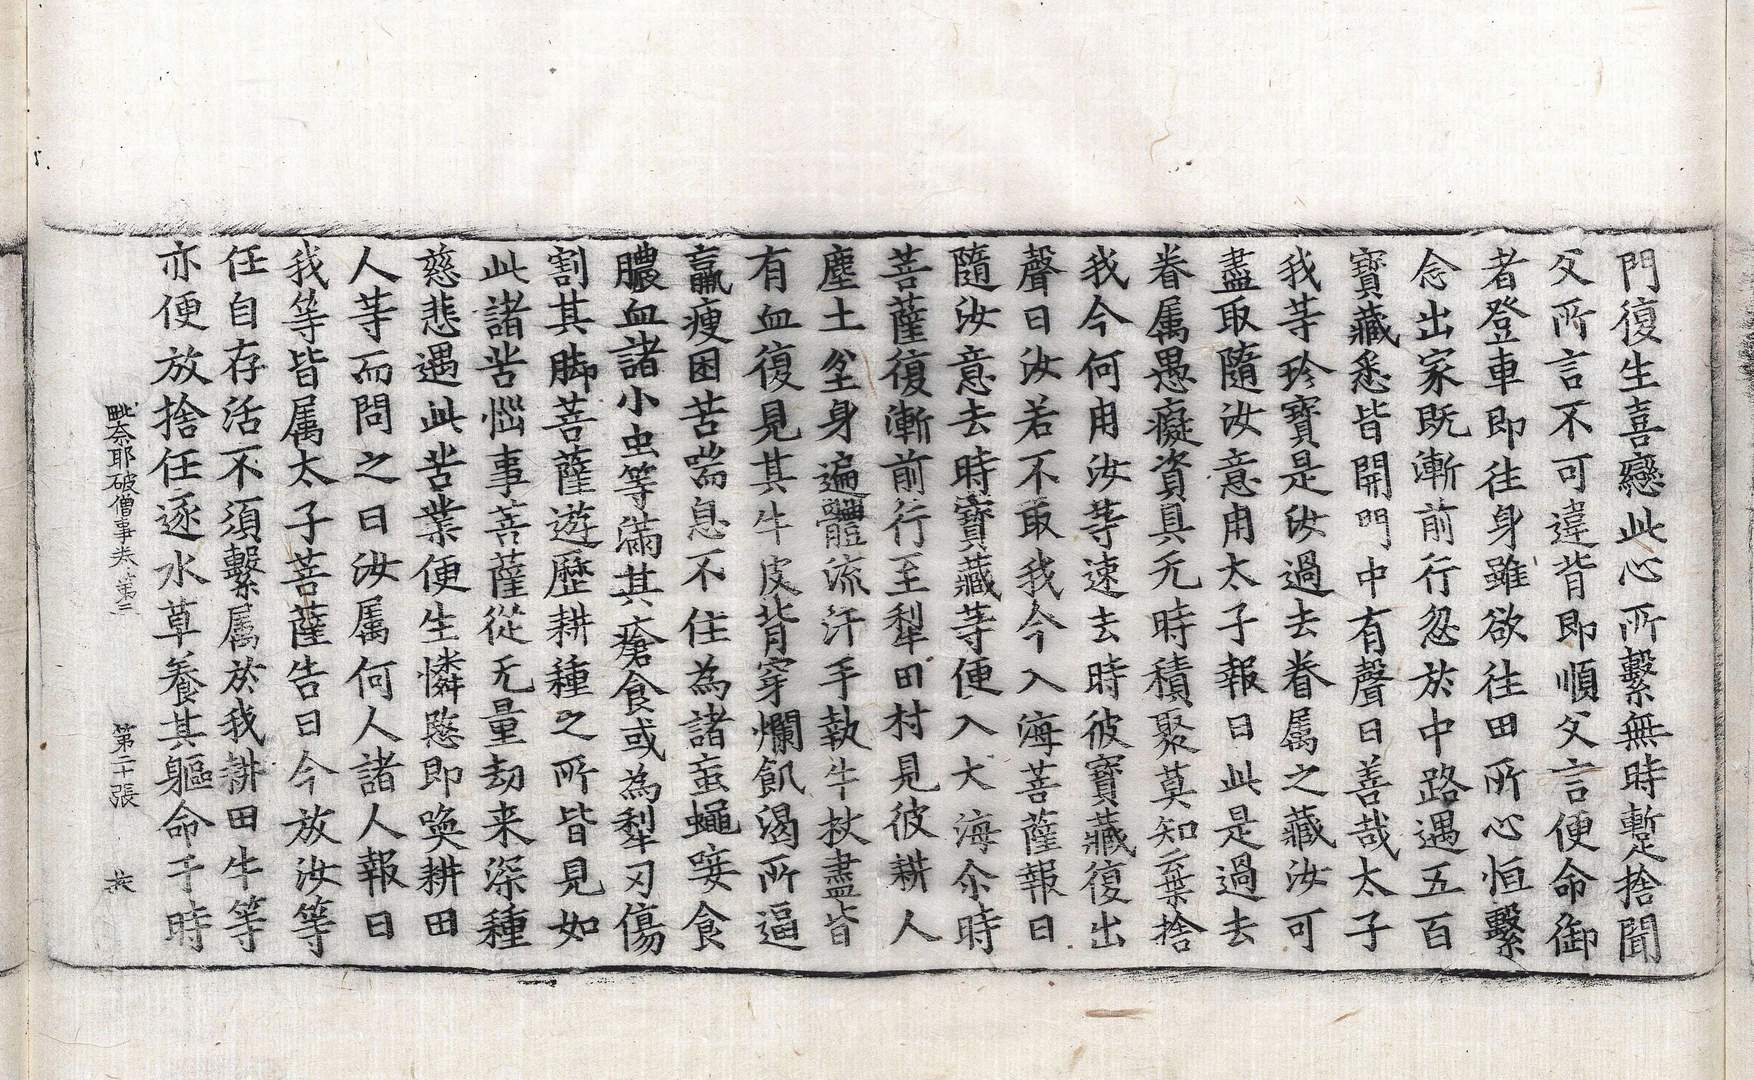 門復生喜戀此心所繫無時蹔捨聞
父所言不可違背即順父言便命御
者登車即往身雖欲往田所心恒繫
念出家既漸前行忽於中路遇五百
寶藏悉皆開門中有聲曰善哉太子
我等珍寶是汝過去眷属之藏汝可
盡取隨汝意用太子報曰此是過去
眷属愚癡資具无時積聚莫知棄捨
我今何用汝等速去時彼寶藏復出
聲曰汝若不取我今入海菩薩報曰
隨汝意去時寶藏等便入大海尒時
菩薩復漸前行至犁田村見彼耕人
塵土坌身遍體流汗手執牛杖盡皆
有血復見其牛皮背穿爛飢渴所逼
羸瘦困苦喘息不住為諸蝱蠅唼食
膿血諸小虫等滿其瘡食或為犁刃傷
割其脚菩薩遊歷耕種之所皆見如
此諸苦惱事菩薩從无量劫来深種
慈悲遇此苦業便生憐愍即喚耕田
人等而問之曰汝属何人諸人報曰
我等皆属太子菩薩告曰今放汝等
任自存活不須繫属於我耕田牛等
亦便放捨任逐水草養其軀命于時
毗奈耶破僧事卷第三 第二十張